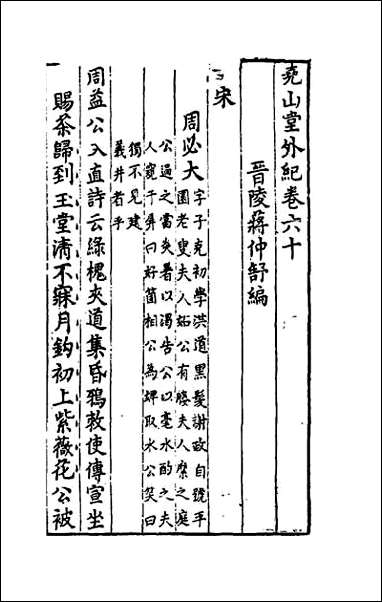 堯山堂外紀卷六十
晉陵蔣仲舒編
宋
周必大
字子充初學洪道黑髮謝政自號平
園老叟夫人妬公有媵夫人縻之庭
公過之當炎暑以渴告公以水酌之夫
人窺于屏曰好箇相公為婢取水公笑曰
獨不見建
義井者乎
周益公入直詩云綠槐夾道集昏鴉敕使傳宣坐
賜茶歸到玉堂清不寐月鈎初上紫薇花公被